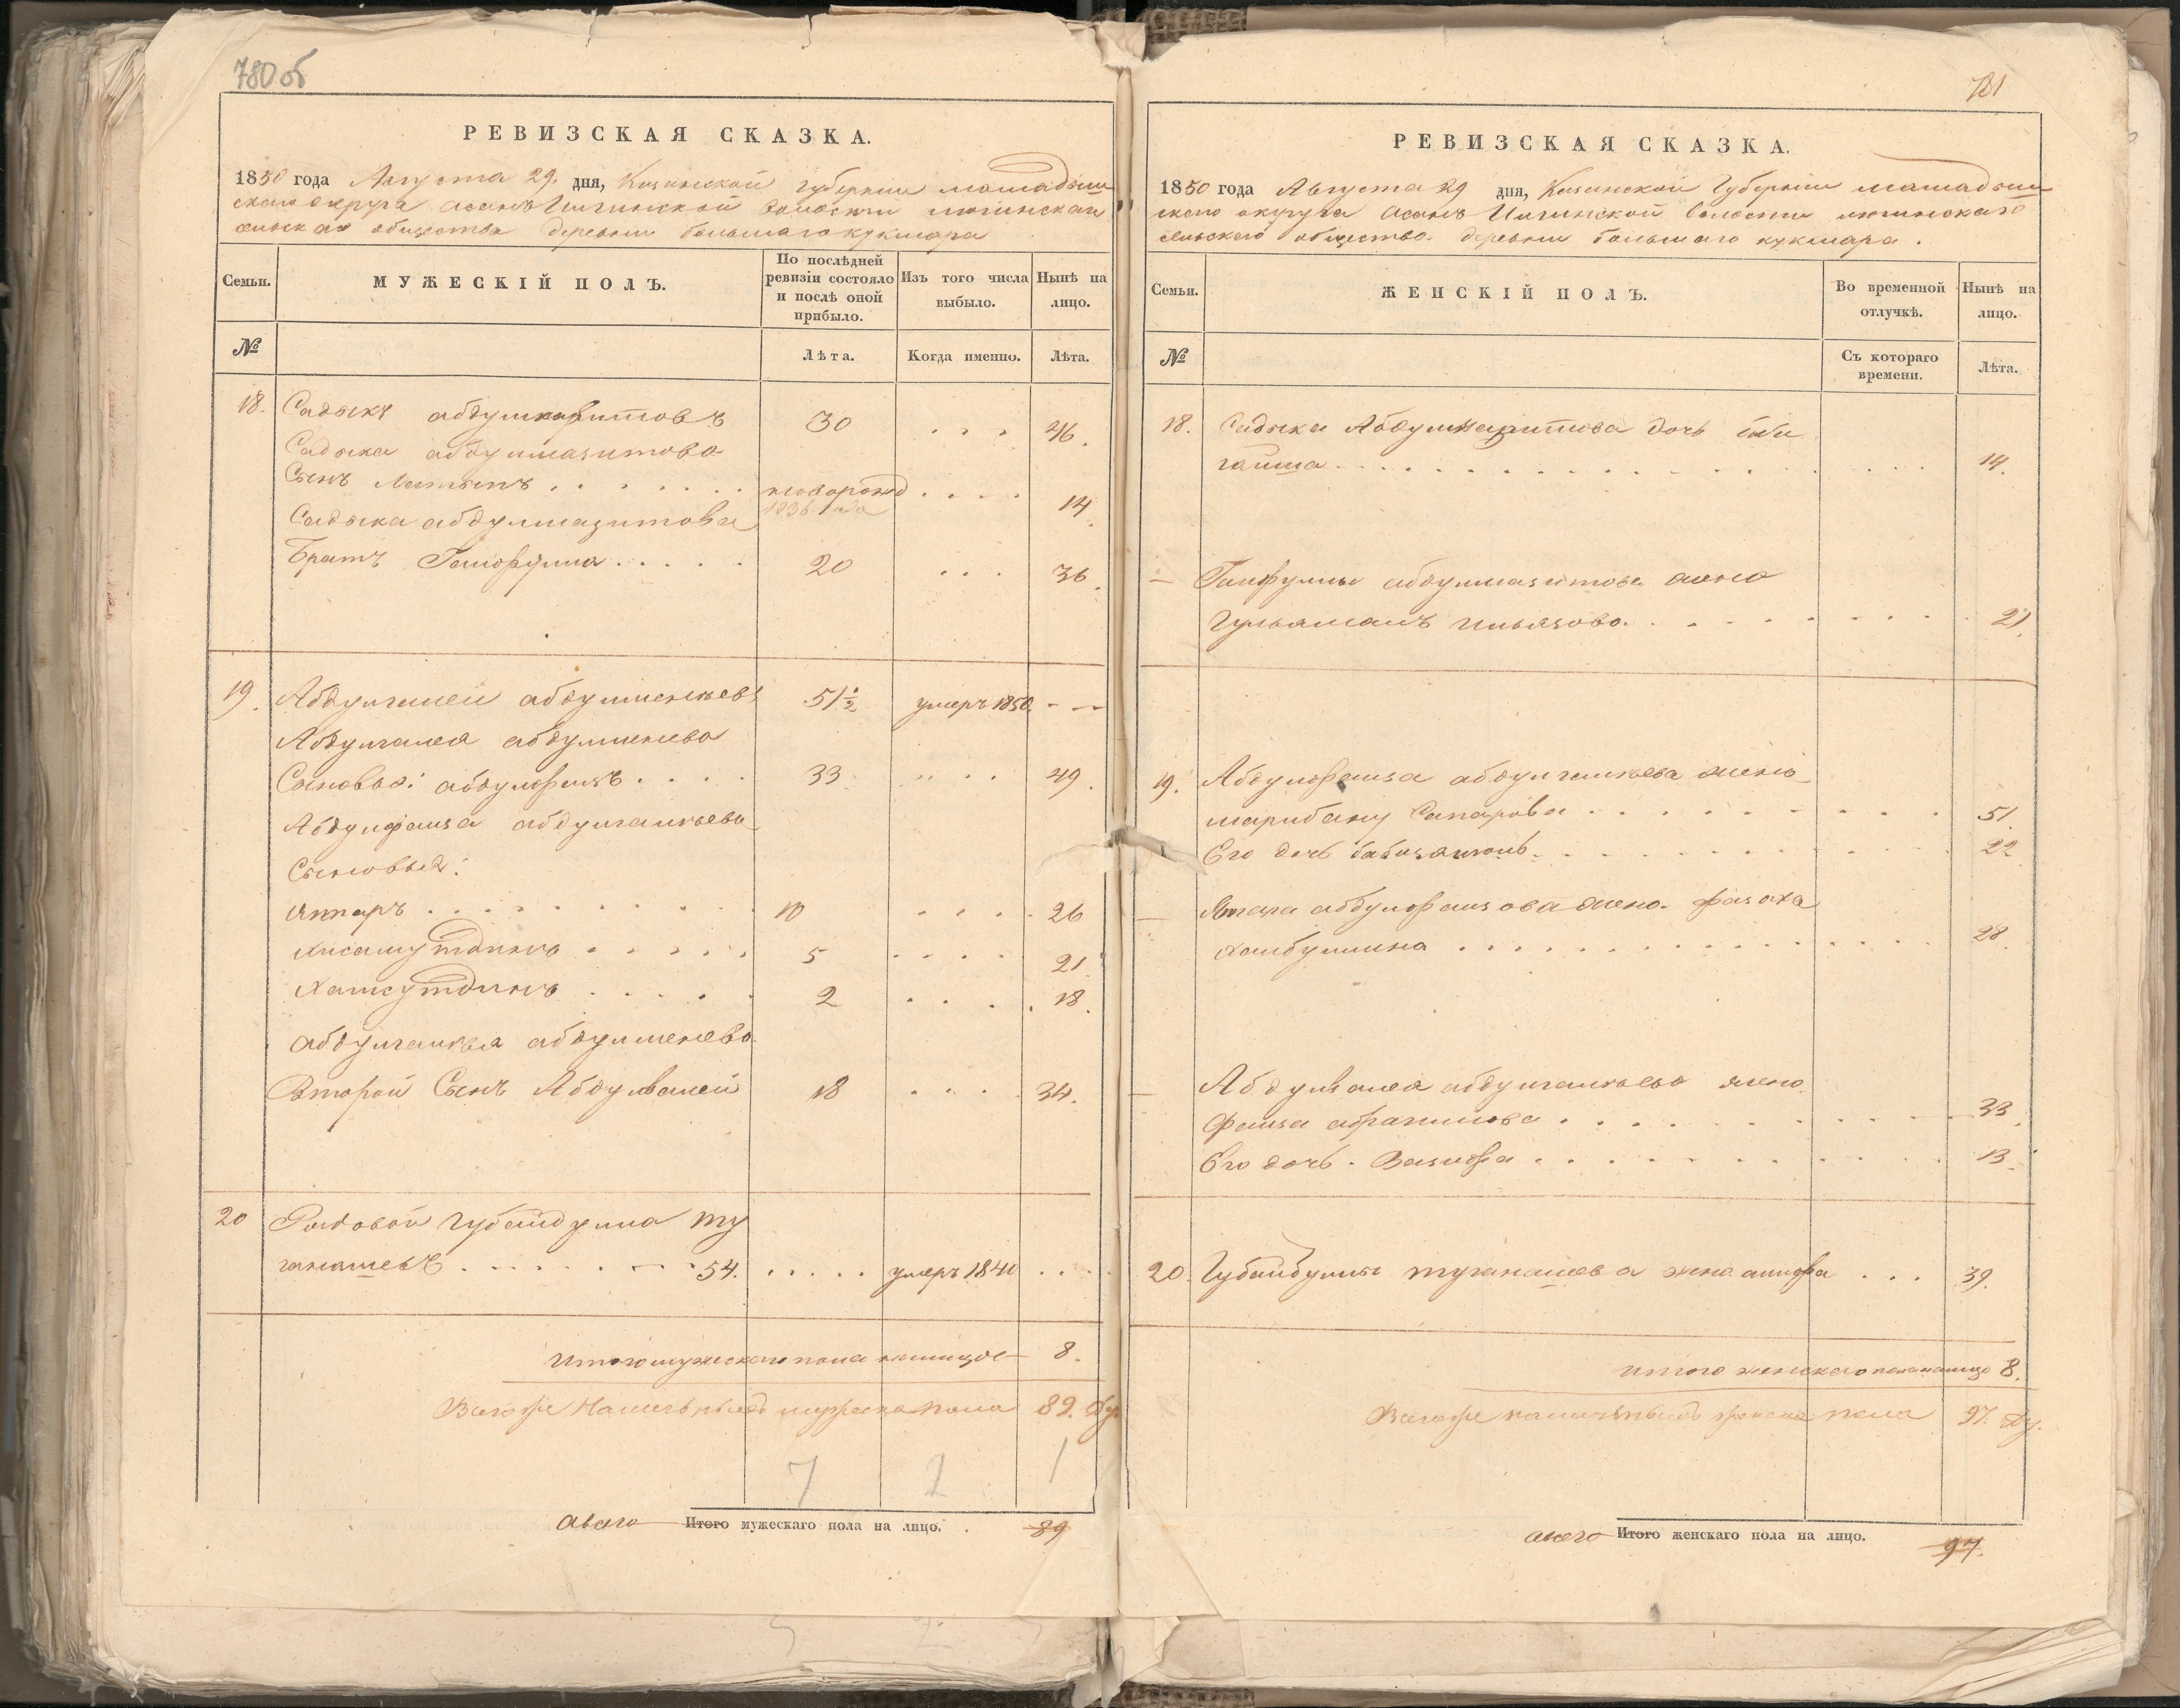 780 об
РЕВИЗСКАЯ СКАЗКА.
1850 года Августа 29. дня, Казанской губернiи мамадыш
скаго округа асанъ Илгинской волости
общества деревни большаго кукмара
Семьи.
МУЖЕСКІЙ ПОЛЪ.
По послѣдней
ревизіи состояло
и послѣ оной
прибыло.
Изъ того числа
выбыло.
Нынѣ на
лицо.
№
Лѣта.
Когда именно.
Лѣта.
18. Садыкъ 30 . . . 46.
Садыка абдулмазитова
Сынъ Латыпъ . . . . . . . новорожд . . . . 14.
1836 года
Садыка абдулмазитова
Братъ . . . . . 20 . . . 36.
19. Абдулгалей 51½ умеръ 1850. - -
Абдулгалея абдулменева
Сыновья: абдулфаизъ . . . . 33 . . . . 49.
Абдулфаиза абдулгалеева
Сыновья:
. . . . . . . . . . 10 . . . . 26
Хисамутдинъ . . . . . 5 . . . . 21.
. . . . . 2 . . . . 18.
абдулгалея абдулменева
Второй Сынъ Абдулвалей 18 . . . . 34.
20 Рядовой Губайдулла ту
ганашевъ . . . . . . . 54. . . . . . умеръ 1840 . . . .
Итого мужескаго пола налицое 8.
Всего же мужеска пола 89. ду
7 2 1
авсего Итого мужескаго пола на лицо. . 89
781
РЕВИЗСКАЯ СКАЗКА.
1850 года Августа 29 дня, Казанской Губернiи мамадыш
скаго округа асанъ Илгинской волости
сельскаго общества деревни большаго кукмара.
Семьи.
ЖЕНСКІЙ ПОЛЪ.
Во временной
отлучкѣ.
Нынѣ на
лицо.
№
Съ котораго
времени.
Лѣта.
18. Садыка дочь биби
гайша . . . . . . . . . . 14.
— абдулмазитова жена
Гульямалъ ильязова . . . . . . . . . 21.
19. Абдулфаиза абдулгалеева жена
марибану Сапарова . . . . . . . . . 51.
Его дочь . . . . . . . . . 22
— абдулфаизова жена
Хайбуллина . . . . . . . . . . . 28.
— Абдулвалея абдулгалеева жена
Фаиза . . . . . . . . . 33.
Его дочь . . . . . . . . . 13.
20. Губайдуллы туганашева жена . . . 39.
Итого женскаго пола налицо 8.
Всего же женска пола 97. ду.
авсего Итого женскаго пола на лицо. 97.